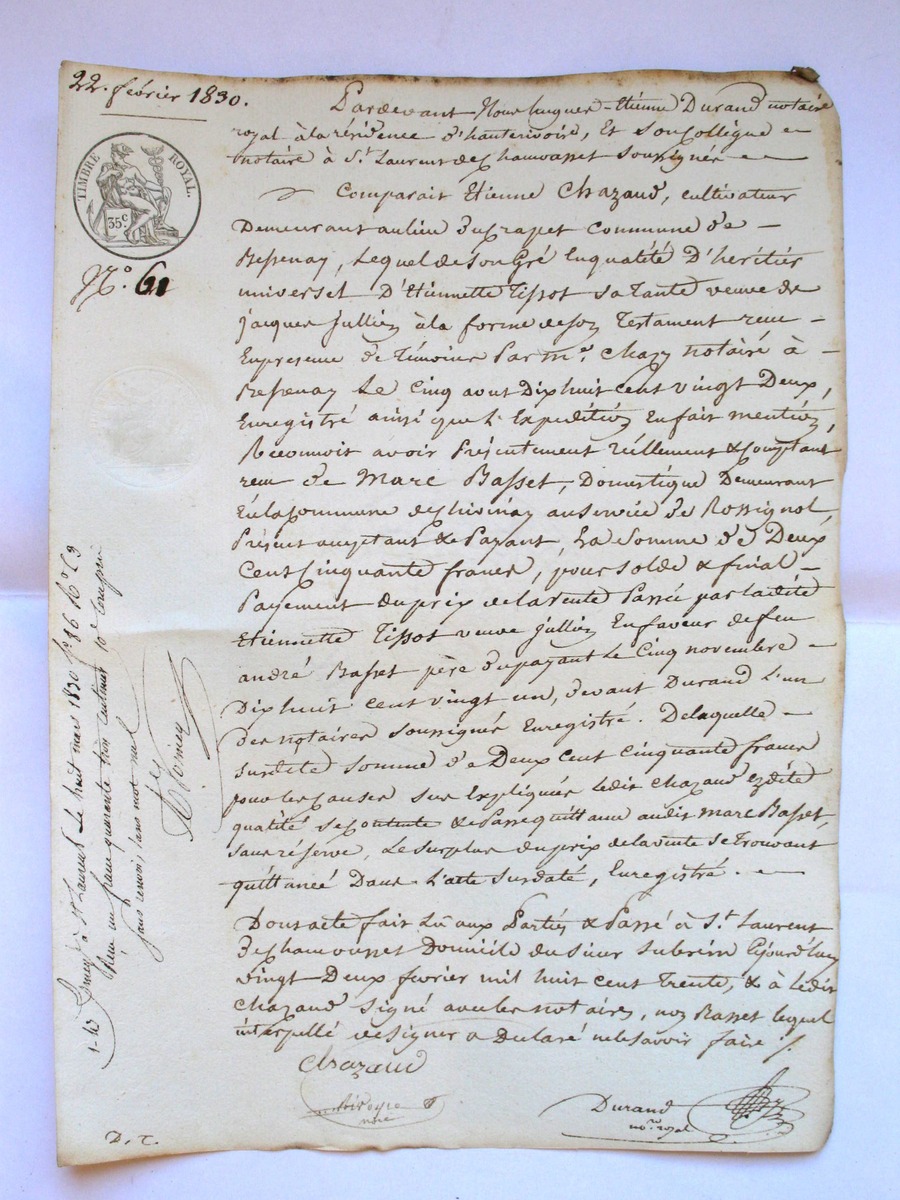 22. février 1830.
TIMBRE ROYAL.
35c
No. 61
Pardevant Nous hugues-Etienne Durand notaire
royal à la résidence d'hauterivoire, Et son Collègue
notaire à St. Laurent de Chamousset soussignés
Comparait Etienne Chazaud, cultivateur
Demeurant au lieu du Crapet commune de
Bessenay, Lequel de son Gré En qualité D'heritier
universel D'Etiennette Tissot sa Tante veuve de
jacques jullien à la forme de son Testament reçu
En presence de Témoins Par me. Chazy notaire à
Bessenay Le Cinq aout Dix huit cent vingt Deux,
Enregistré ainsi que L'Expédition En fait mention,
Reconnoit avoir Présentement réellement & Comptant
reçu de Marc Basset, Domestique Demeurant
En la Commune de Chevinay au service de Rossignol,
Présent acceptant & Payant, La Somme de Deux
Cent Cinquante francs, pour solde & final
Payement du prix de la vente Passée par la dite
Etiennette Tissot veuve jullien En faveur de feu
andré Basset père du payant Le Cinq novembre
Dix huit cent vingt un, devant Durand L'un
des notaires soussignés Enregistré. De laquelle
susdite somme de Deux Cent cinquante francs
pour les Causes sus Expliquées ledit Chazaud Ezdite
qualité se contente & Passe quittance audit Marc Basset,
sans réserve, Le surplus du prix de la vente se trouvant
quittancé Dans L'acte susdaté, Enregistré.
Dont acte fait Lû aux Parties & Passé à St. Laurent
de Chamousset Domicile du sieur Eujourd'huy
vingt Deux fevrier mil huit cent Trente, & à ledit
Chazaud signé avec les notaires, non Basset lequel
interpellé de signer a Declaré ne le savoir faire ./.
Chazaud
nore
Durand
nore. royal
D. T.
Enregé à St Laurent Le huit mars 1830 fo 86 Ro C 9
Reçu un franc quarante trois centimes 10e Compris
sans renvoi, sans mot nul